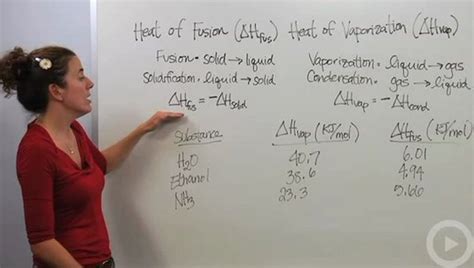 Heat of Fusion (ΔHfus) Heat of Vaporization (ΔHvap)
Fusion = solid → liquid
Solidification = liquid → solid
ΔHfus = -ΔHsolid
Vaporization = liquid → gas
Condensation = gas → liquid
ΔHvap = -ΔHcond
Substance ΔHvap (KJ/mol) ΔHfus (KJ/mol)
H2O 40.7 6.01
Ethanol 38.6 4.94
NH3 23.3 5.66